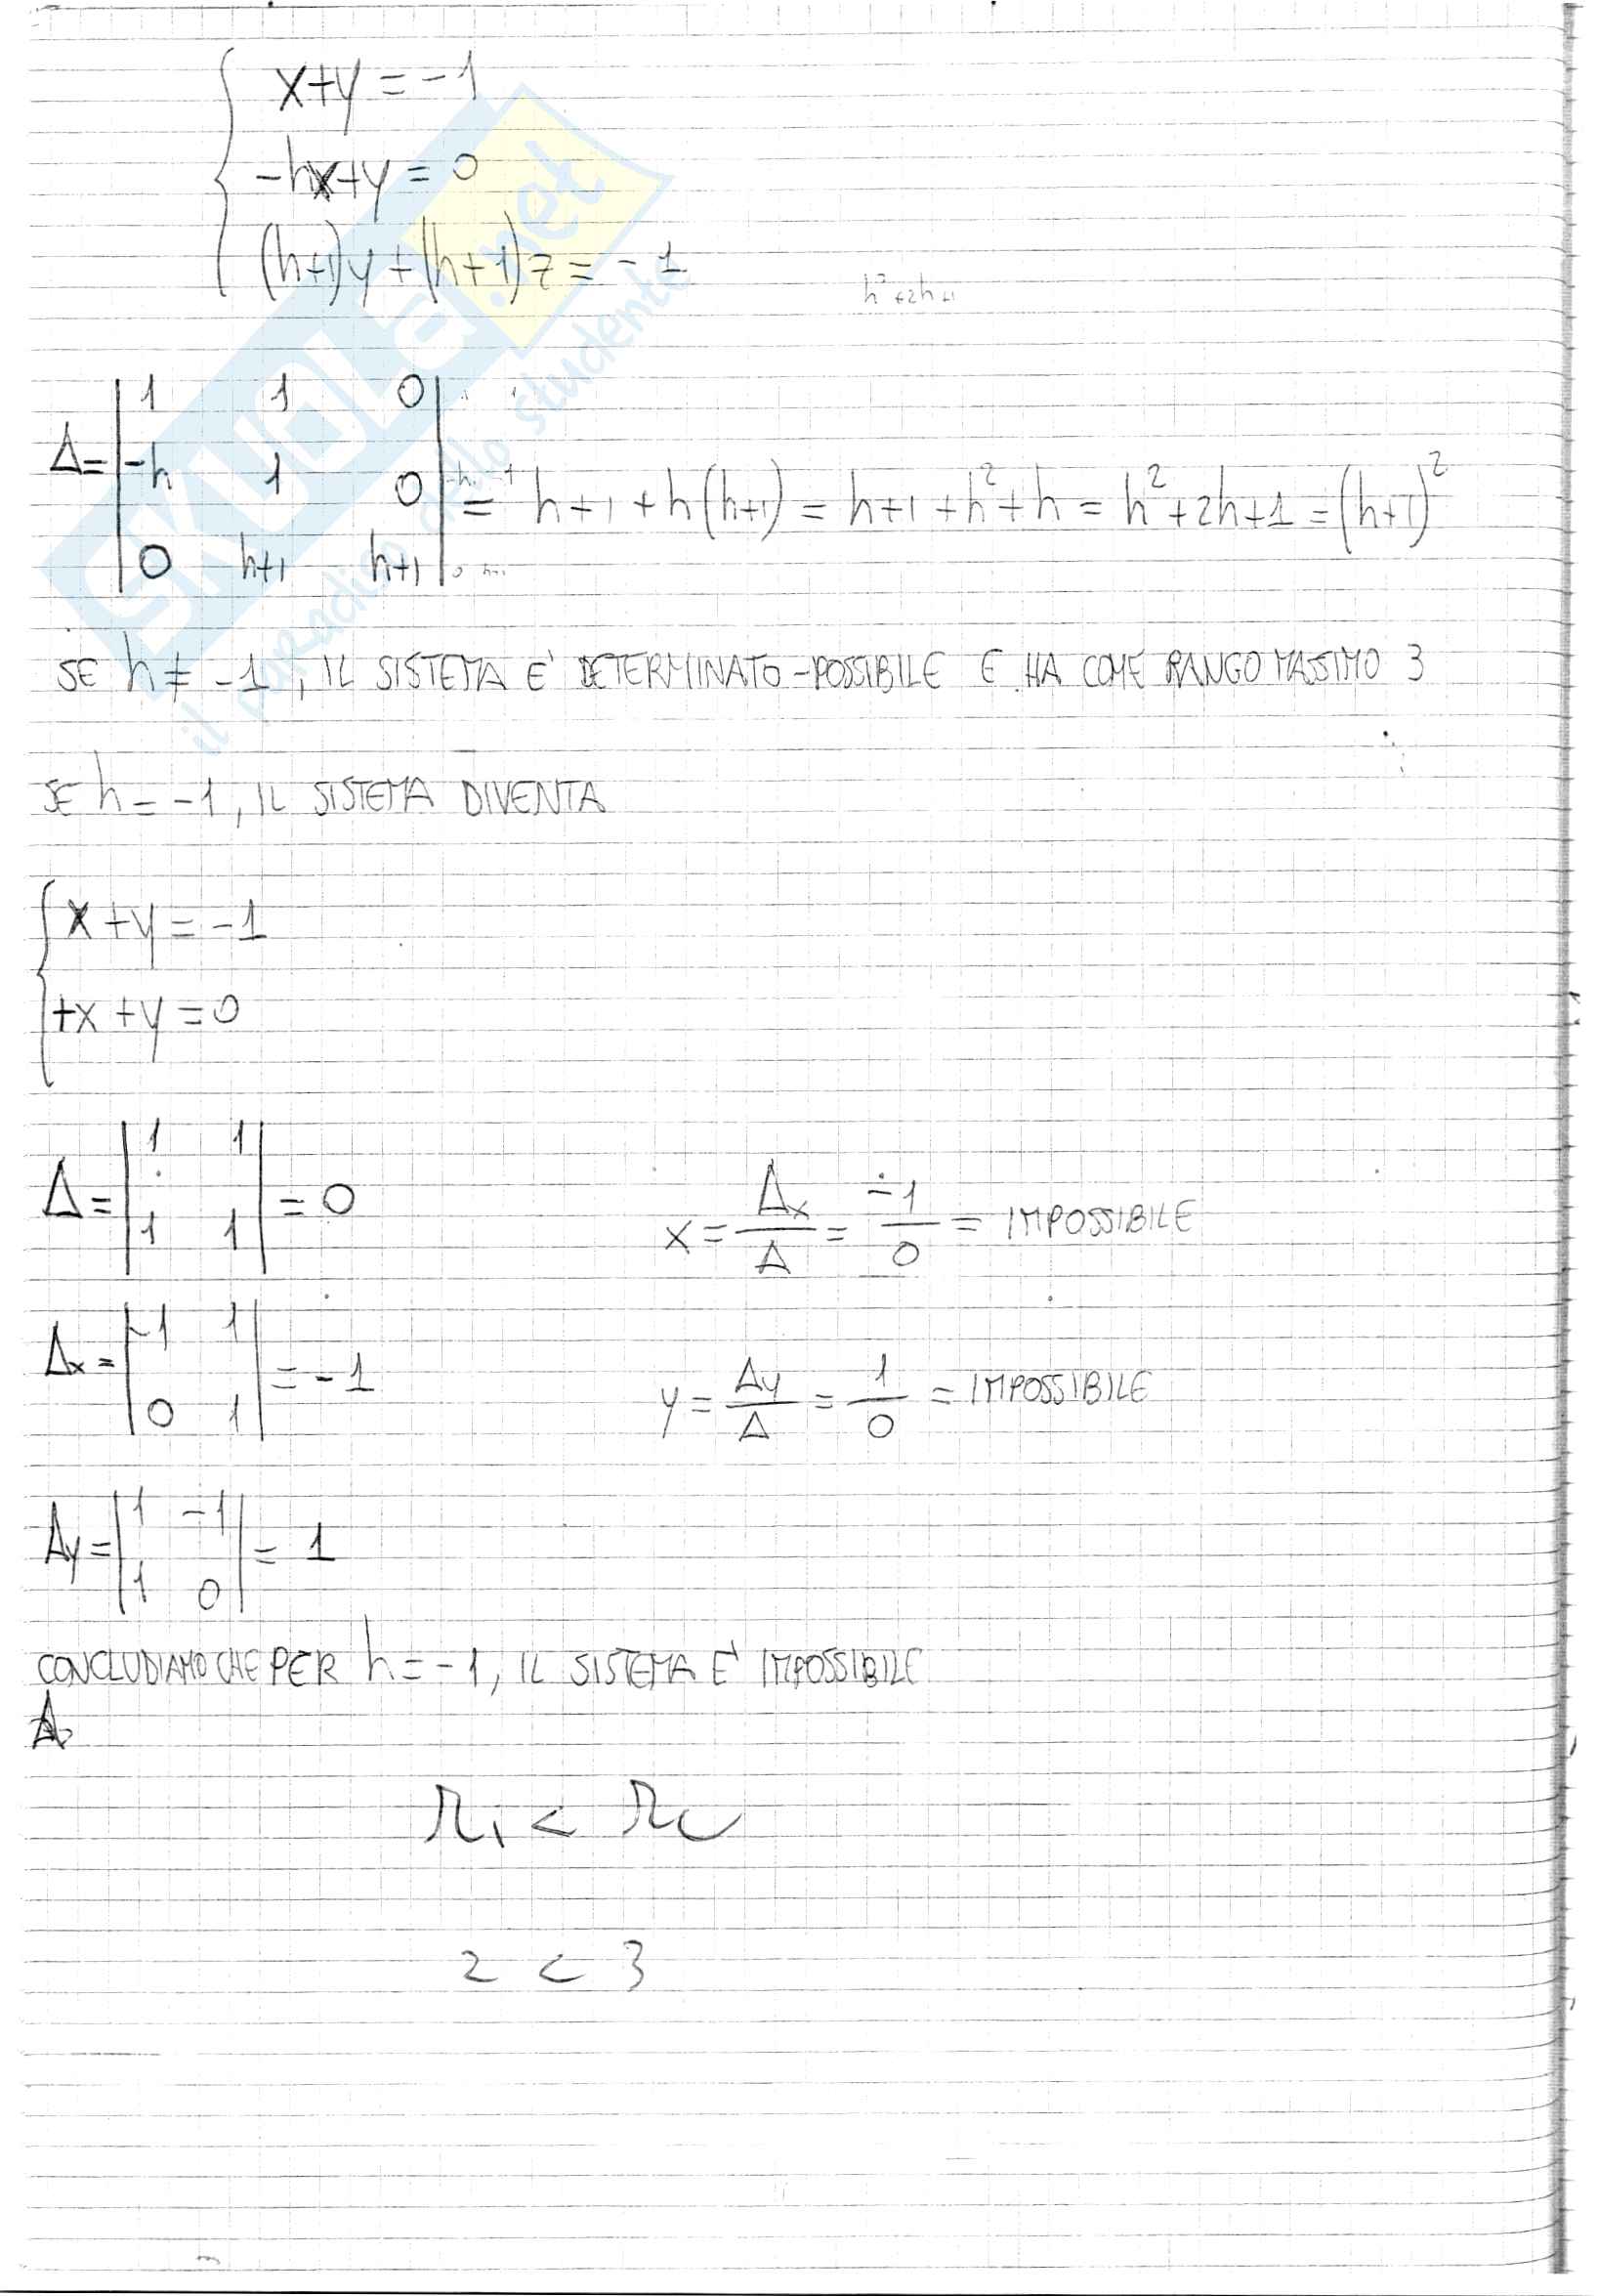 x+y = -1
-hx+y = 0
(h+1)y + (h+1)z = -1
h²+2h+1
Δ= | 1 1 0 |
| -h 1 0 | = h+1 + h(h+1) = h+1 + h² + h = h² + 2h + 1 = (h+1)²
| 0 h+1 h+1 |
SE h ≠ -1, IL SISTEMA E' DETERMINATO-POSSIBILE E HA COME RANGO MASSIMO 3
SE h = -1, IL SISTEMA DIVENTA
x + y = -1
+x + y = 0
Δ= | 1 1 |
| 1 1 | = 0
x = Δx / Δ = -1 / 0 = IMPOSSIBILE
Δx = | -1 1 |
| 0 1 | = -1
y = Δy / Δ = 1 / 0 = IMPOSSIBILE
Δy = | 1 -1 |
| 1 0 | = 1
CONCLUDIAMO CHE PER h = -1, IL SISTEMA E' IMPOSSIBILE
r₁ < rc
2 < 3
SKUOLA.net
il paradiso dello studente